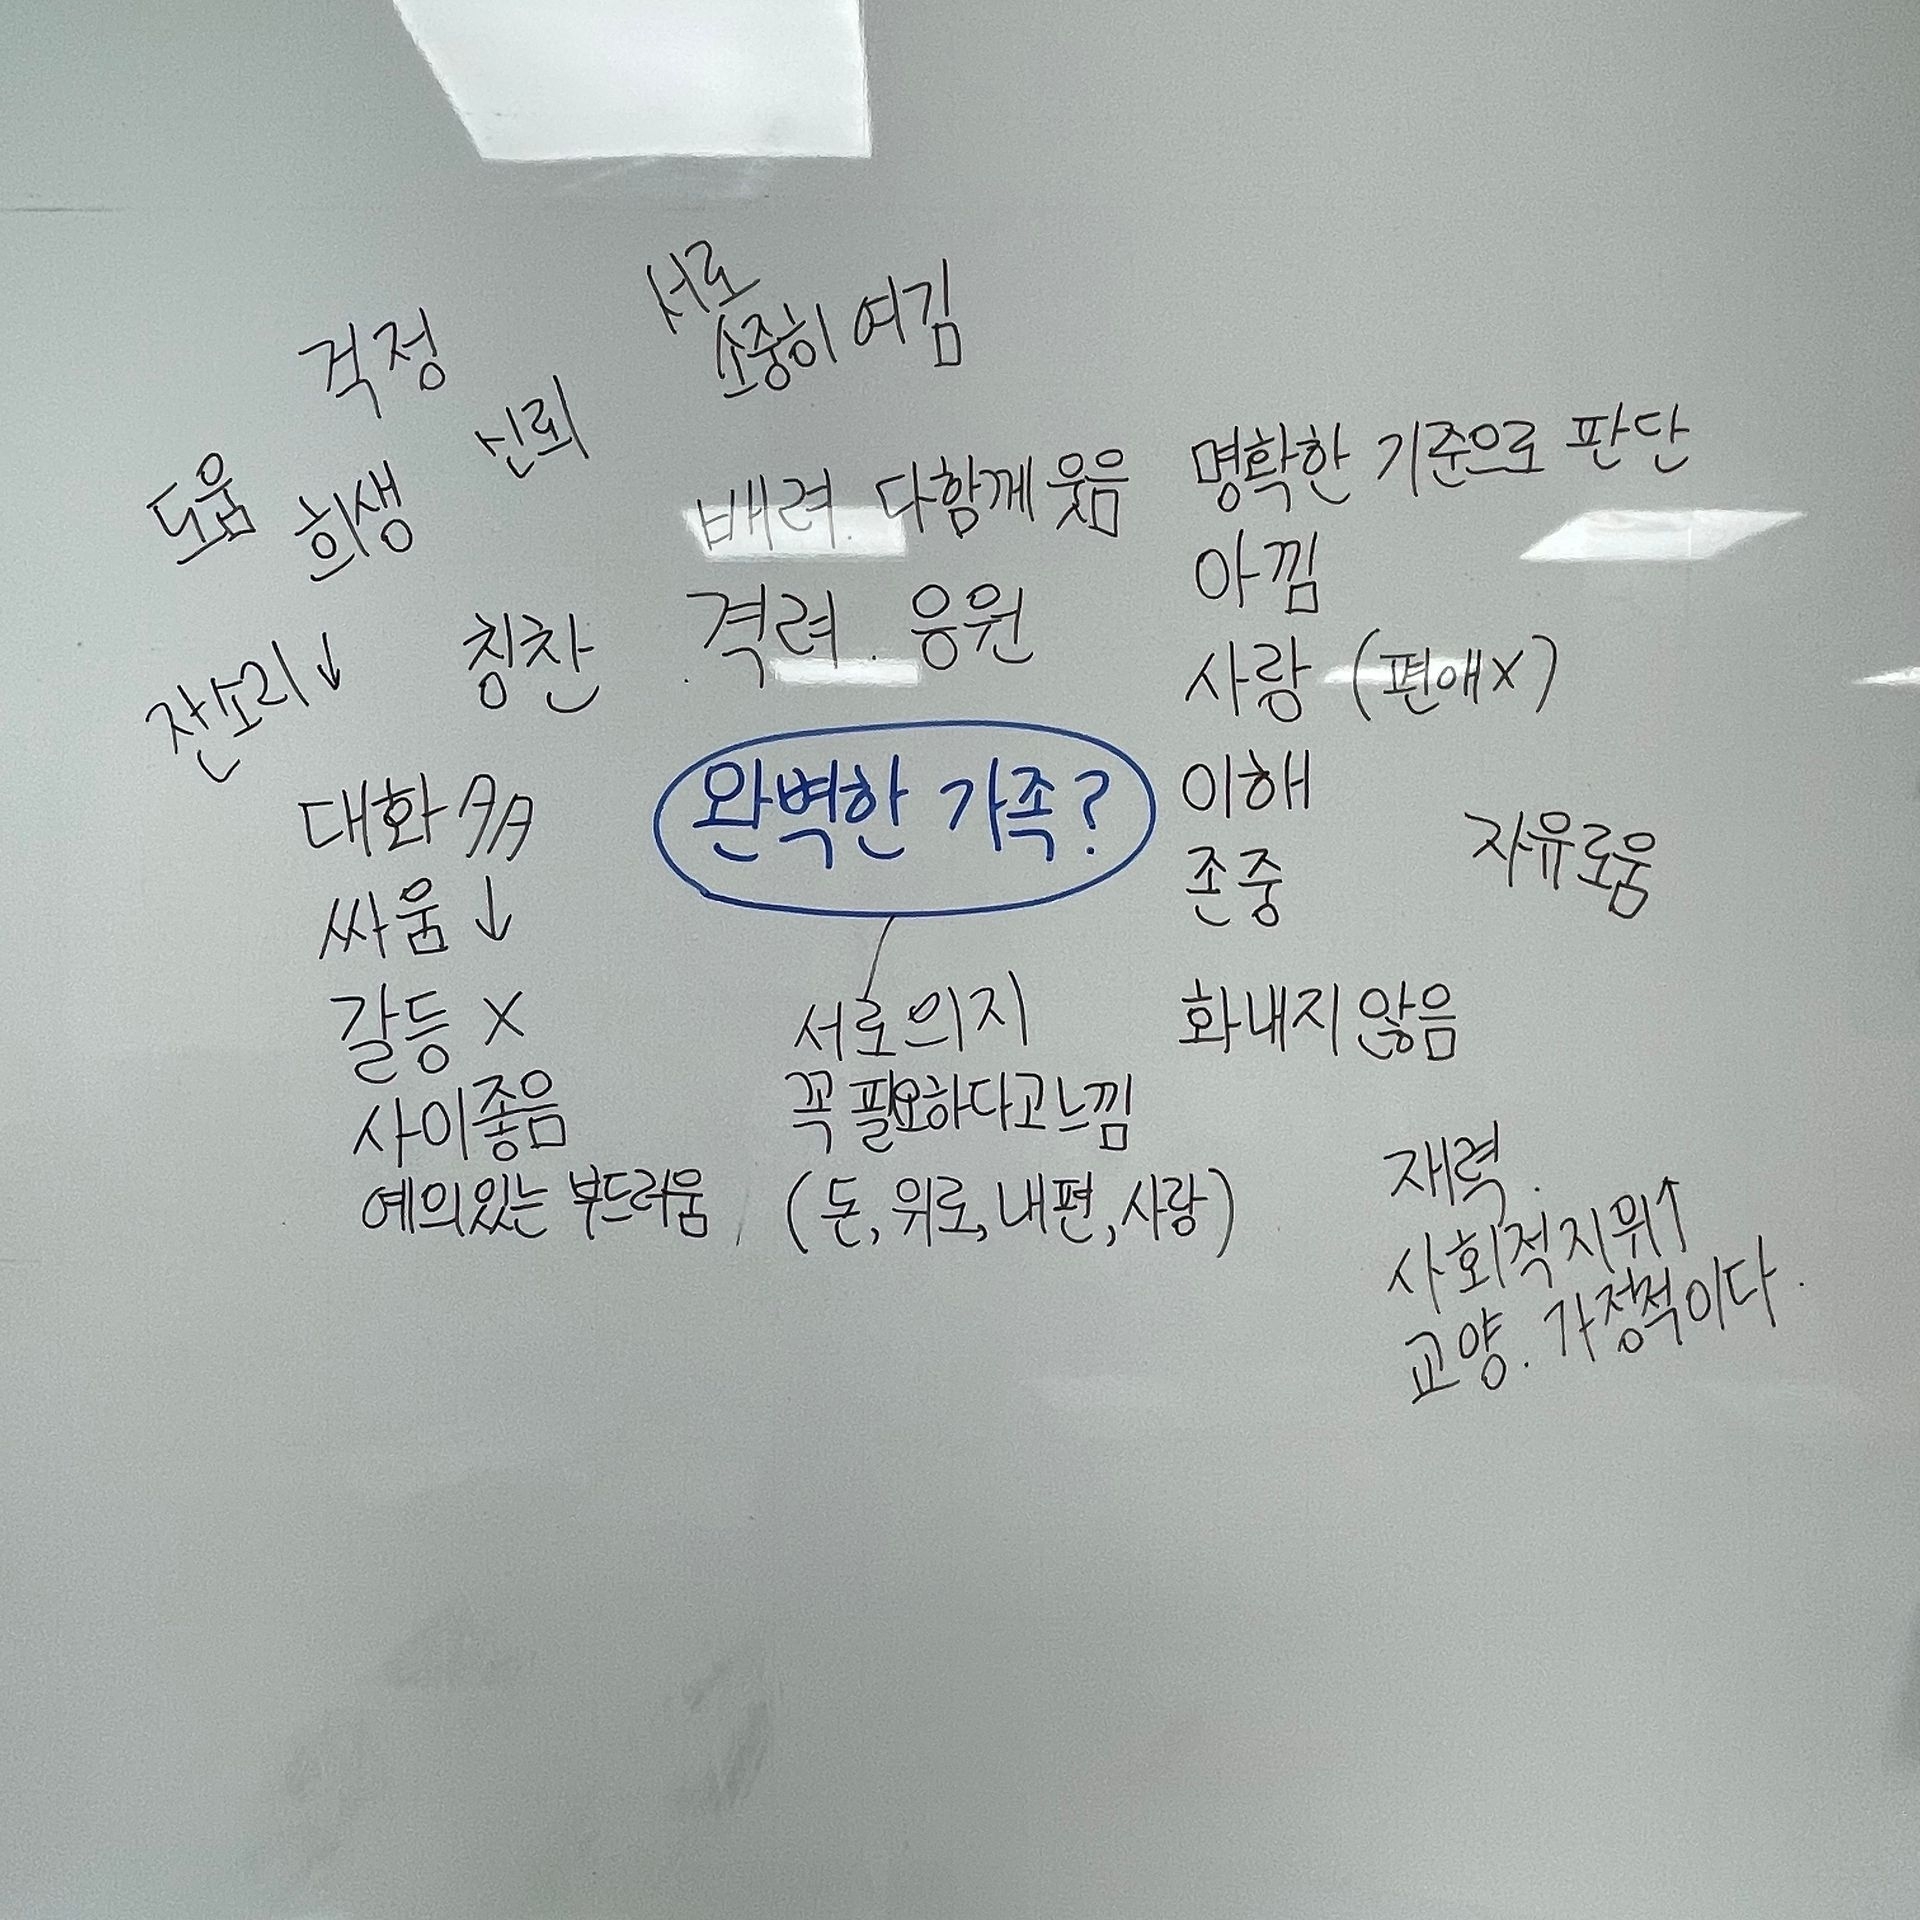 서로
소중히 여김
걱정
신뢰
도움
희생
배려. 다함께 웃음
명확한 기준으로 판단
아낌
격려. 응원
사랑 (편애X)
잔소리↓
칭찬
완벽한 가족?
이해
대화 多
존중
자유로움
싸움↓
갈등 X
서로의지
화내지 않음
사이좋음
꼭 필요하다고 느낌
예의있는 부드러움
(돈, 위로, 내편, 사랑)
재력.
사회적지위↑
교양. 가정적이다.